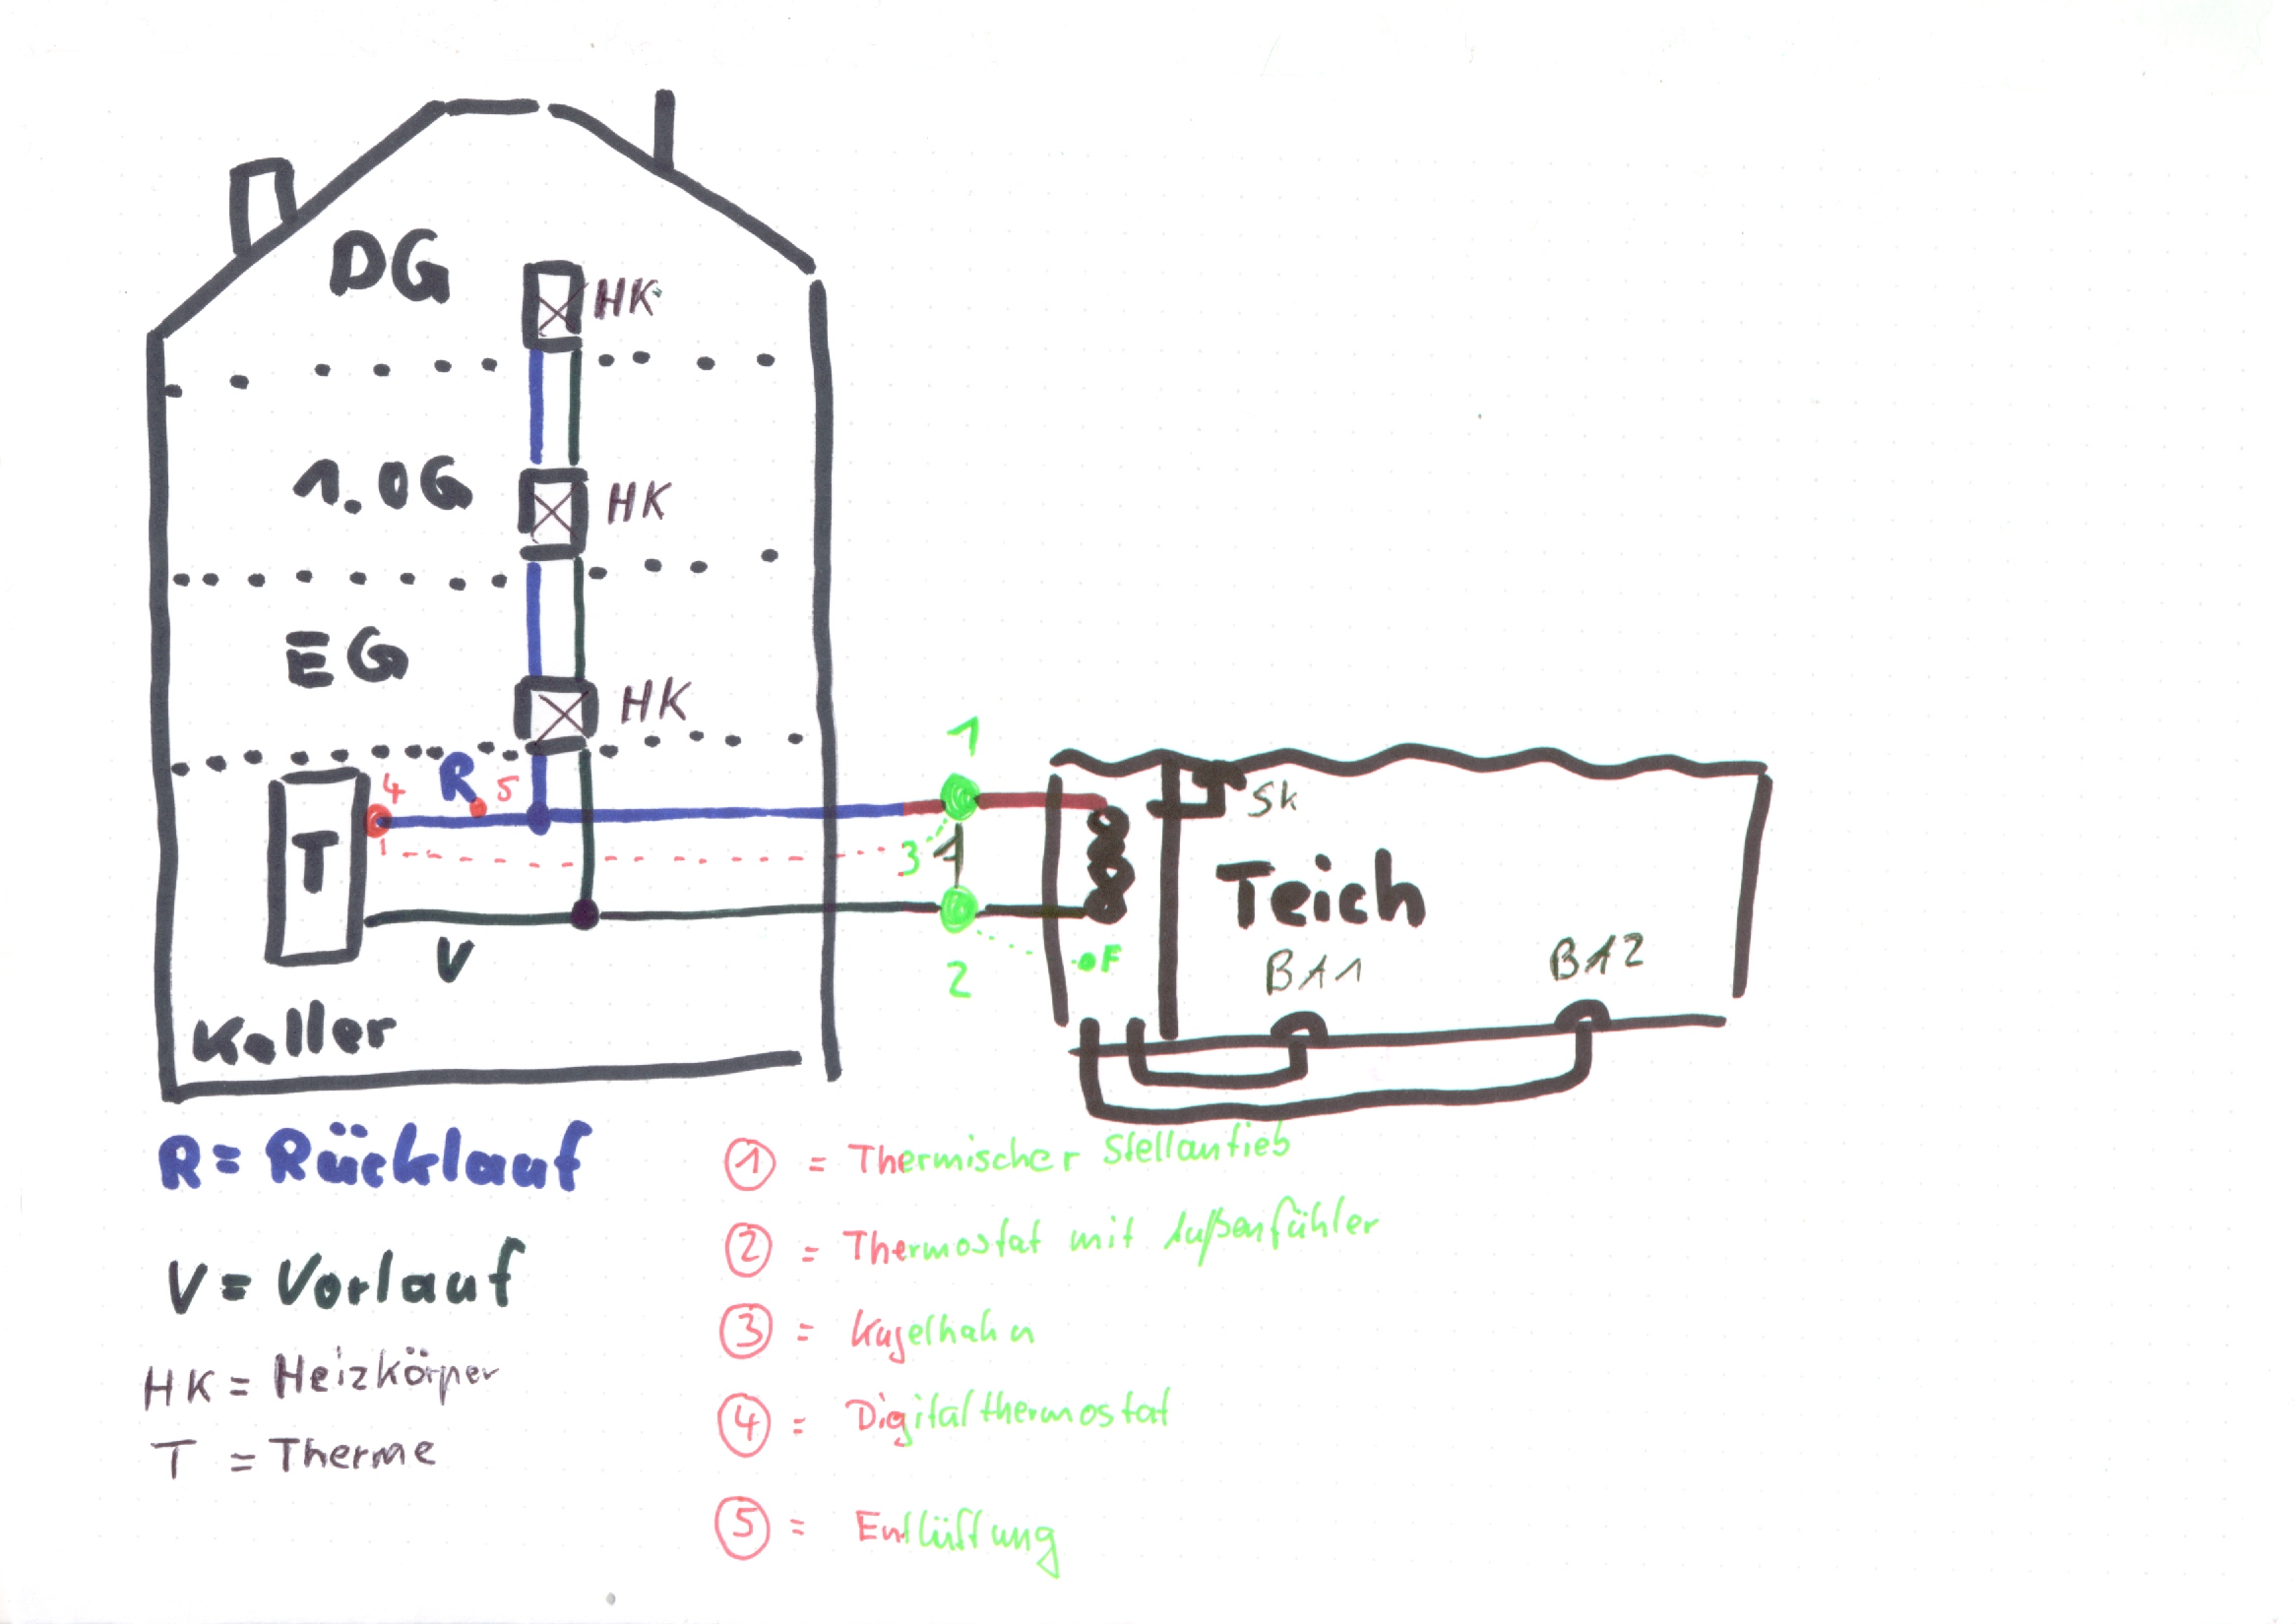 DG
HK
1.OG
HK
EG
HK
R
4
5
T
V
Keller
1
3
1
2
F
Sk
Teich
BA1
BA2
R = Rücklauf
V = Vorlauf
HK = Heizkörper
T = Therme
1 = Thermischer Stellantieb
2 = Thermostat mit Außenfühler
3 = Kugelhahn
4 = Digitalthermostat
5 = Entlüftung